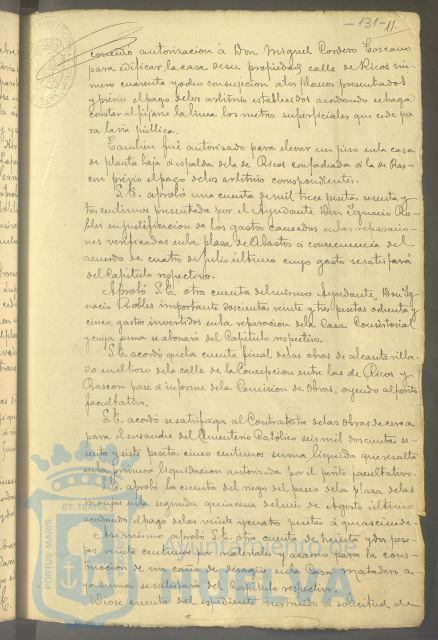 -131- 11
concedió autorización á Don Miguel Cordero Toscano
para edificar la casa de su propiedad, calle de Ricos nú-
mero cuarenta y ocho con sujecion a los planos presentados
y prévio el pago de los arbitrios establecidos acordando se haga
constar al fijarse la linea los metros superficiales que cede pa-
ra la via pública.
Tambien fué autorizado para elevar un piso en la casa
de planta baja á espalda de la de Ricos con fachada á la de Ras-
con prévio el pago de los arbitrios correspondientes.
S.E. aprobó una cuenta de mil trece pesetas sesenta y
tres centimos presentada por el Ayudante Don Ignacio Ro-
bles en justificacion de los gastos causados en las reparacio-
nes verificadas en la plaza de Abastos á consecuencia del
acuerdo de cuatro de Julio último cuyo gasto se satisfará
del Capitulo respectivo.
Aprobó S.E. otra cuenta del mismo Ayudante Don Ig-
nacio Robles importante doscientas veinte y tres pesetas ochenta y
cinco, gastos invertidos en la reparacion de la Casa Consistorial
y cuya suma se abonará del Capitulo respectivo.
S.E. acordó que la cuenta final de las obras de alcantarilla-
do en el trozo de la calle de la Concepcion entre las de Ricos y
Rascon pase á informe de la Comision de Obras, oyendo al perito
facultativo.
S.E. acordó se satisfaga al Contratista de las obras de cerca
para el ensanche del Cementerio Católico seis mil doscientas se-
senta y siete pesetas cinco centimos suma liquida que resulta
en la primera liquidacion autorizada por el perito facultativo.
S.E. aprobó la cuenta del riego del paseo de la plaza de las
Monjas en la segunda quincena del mes de Agosto último
acordando el pago de las veinte y cuatro pesetas á que asciende.
Asimismo aprobó S.E. otra cuenta de treinta y dos pese-
tas veinte centimos por materiales y acarreo para la cons-
truccion de un caño de desagüe en la Casa matadero cu-
ya suma se satisfará del Capitulo respectivo.
Diose cuenta del expediente instruido á solicitud de
PORTUS MARIS ET TERRAE
Ayuntamiento de
HUELVA